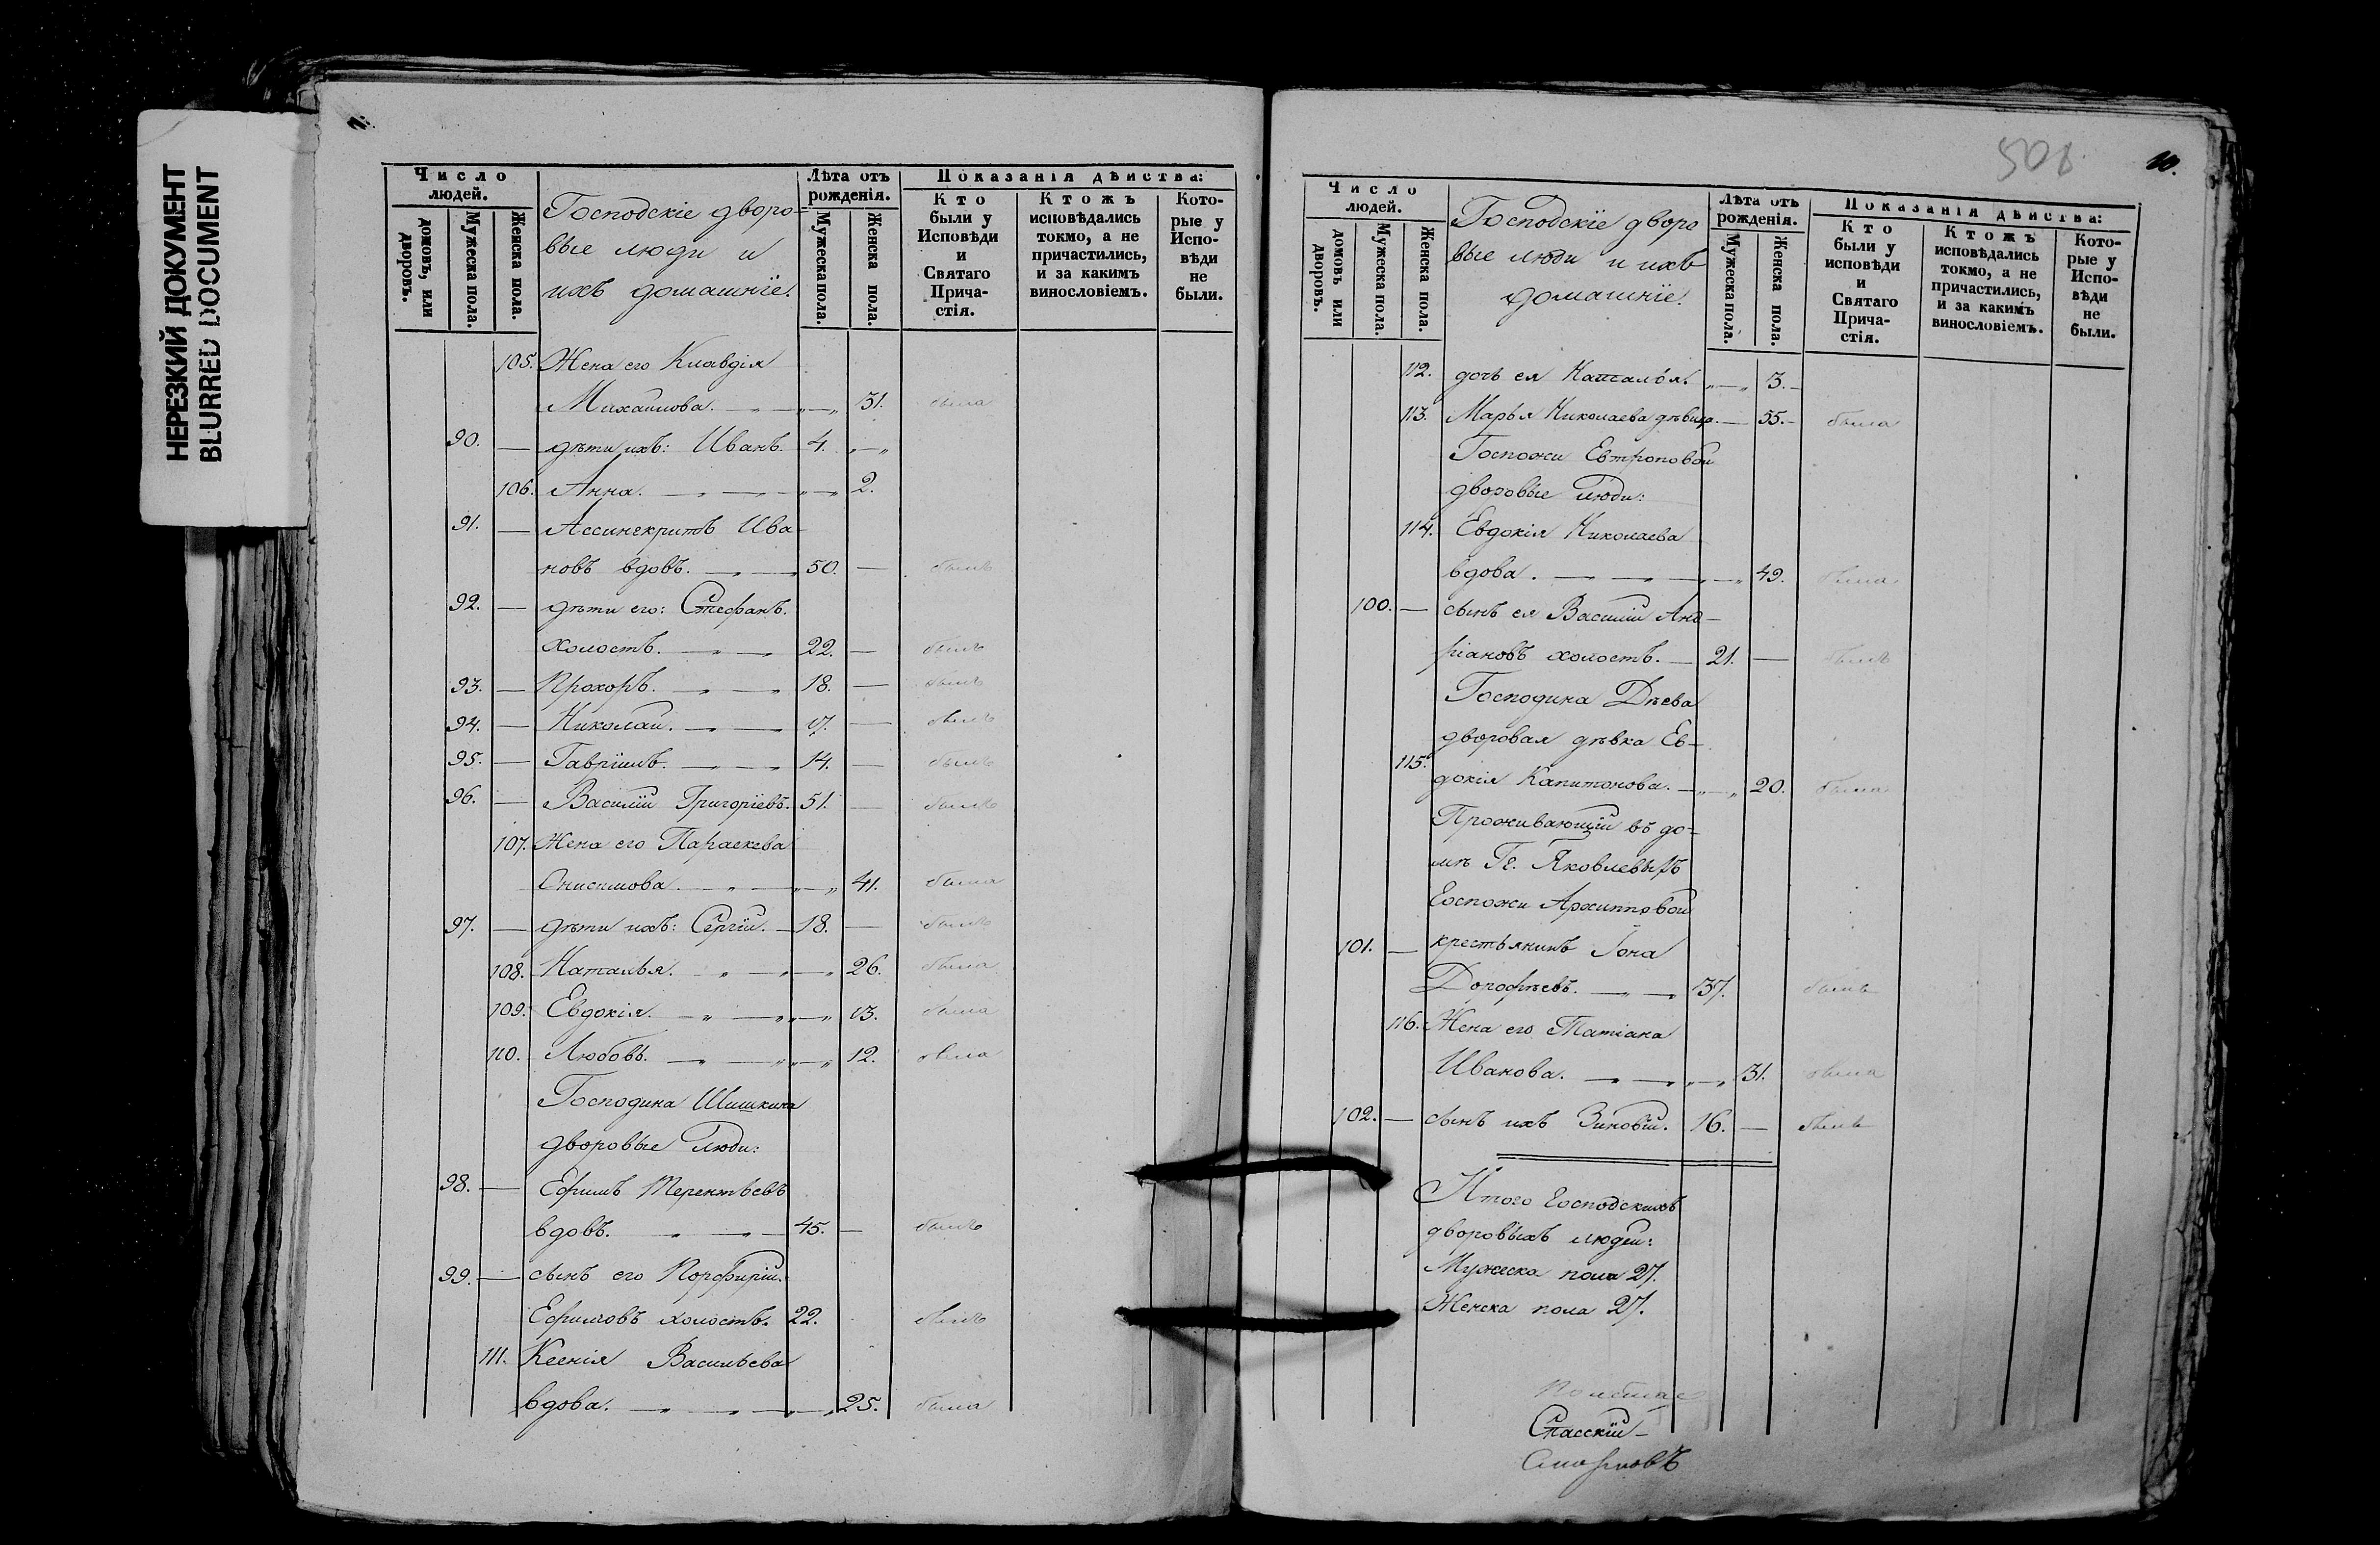 НЕРЕЗКИЙ ДОКУМЕНТ
BLURRED DOCUMENT
Число людей.
домовъ, или дворовъ.
Мужеска пола.
Женска пола.
Господскіе дворо-
вые люди и
ихъ домашніе.
Лѣта отъ рожденія.
Мужеска пола.
Женска пола.
Показанія дѣйства:
Кто были у Исповѣди и Святаго Прича-стія.
Ктожъ исповѣдались токмо, а не причастились, и за какимъ винословіемъ.
Кото-рые у Испо-вѣди не были.
105. Жена его Клавдія
Михайлова. — „ — „ — „ 31. была
90. — дѣти ихъ: Иванъ. 4. „ — „
106. Анна. — „ — „ — „ 2.
91. — Ассинкритъ Ива-
новъ вдовъ. — „ — „ 50. — былъ
92. — дѣти его: Стефанъ.
холостъ. — „ — „ 22. — былъ
93. — Прохоръ. — „ — „ 18. — былъ
94. — Николай. — „ — 17. — былъ
95. — Гавріилъ. — „ — „ 14. — былъ
96. — Василій Григоріевъ. 51. — былъ
107. Жена его Параскева
Онисимова. — „ — „ — „ 41. была
97. — дѣти ихъ: Сергій. — 18. — былъ
108. Наталья. — „ — „ — „ 26. была
109. Евдокія. — „ — „ — „ 13. была
110. Любовь. — „ — „ — „ 12. была
Господина Шишкина
дворовые люди:
98. — Ефимъ Терентьевъ
вдовъ. — „ — „ — 45. — былъ
99. — сынъ его Порфирій.
Ефимовъ холостъ. 22. былъ
111. Ксенія Васильева
вдова. — „ — „ — „ 25. была
501
10.
Число людей.
домовъ или дворовъ.
Мужеска пола.
Женска пола.
Господскіе дворо
вые люди и ихъ
домашніе.
Лѣта отъ рожденія.
Мужеска пола.
Женска пола.
Показанія дѣйства:
Кто были у исповѣди и Святаго Прича-стія.
Ктожъ исповѣдались токмо, а не причастились, и за какимъ винословіемъ.
Кото-рые у Испо-вѣди не были.
112. дочь ея Наталья. „ — „ 3. —
113. Марья Николаева дѣвица. — 55. — была
Госпожи Евтроповой
дворовые люди:
114. Евдокія Николаева
вдова. — „ — „ — „ 49. была
100. — сынъ ея Василій Анд-
ріановъ холостъ. — 21. — былъ
Господина Дѣева
дворовая дѣвка Ев-
115. докія Капитонова. — „ — „ 20. была
Проживающій въ до-
мѣ Гг. Яковлевыхъ
Госпожи Архиповой
101. — крестьянинъ Іона
Дорофѣевъ. — „ — „ 37. былъ
116. Жена его Татіана
Иванова. — „ — „ — „ 31. была
102. — сынъ ихъ Зиновій. 16. — былъ
Итого Господскихъ
дворовыхъ людей:
Мужеска пола 27.
Женска пола 27.
Спасскій —